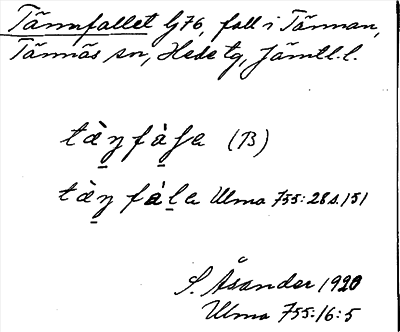 Tännfallet G76, fall i Tännan,
Tännäs sn, Hede tg, Jämtl. l.
tὰṉfὰʃa (B)
tὰṉ fàḻa Ulma 755:28 s. 151
S. Åsander 1920
Ulma 755:16:5